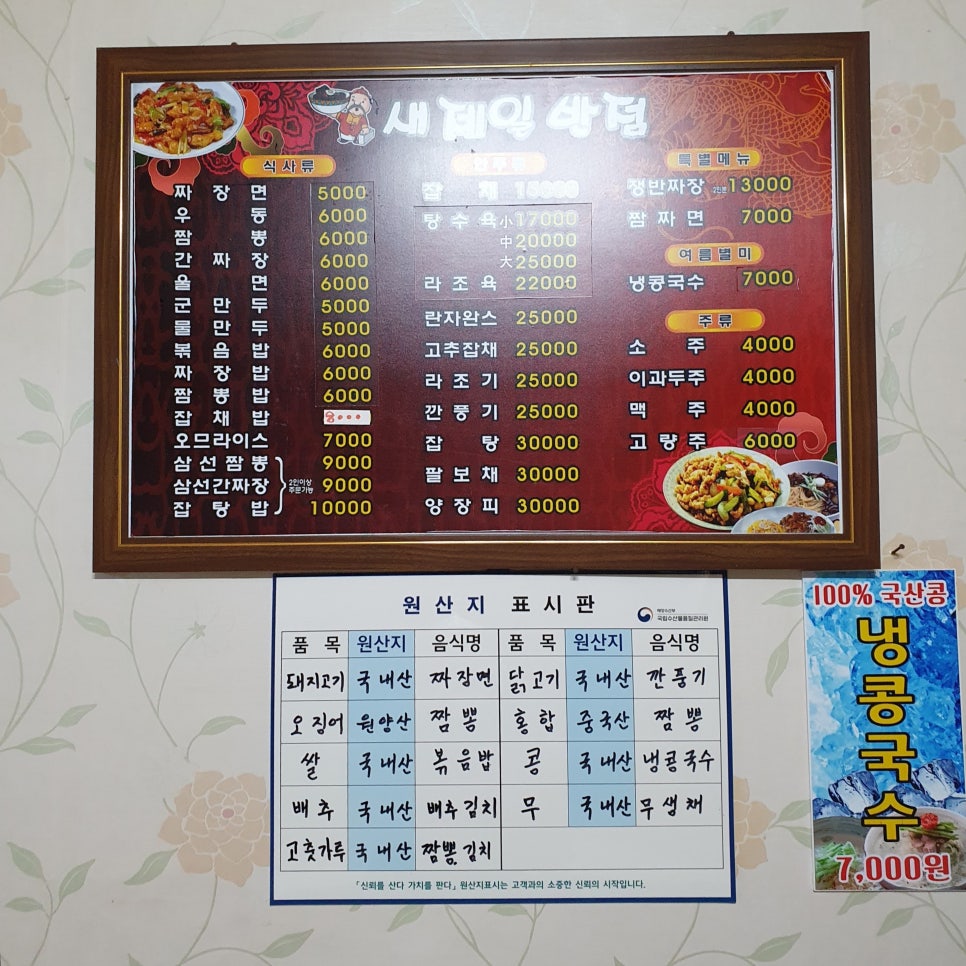 새제일반점
식사류
짜장면 5000
우동 6000
짬뽕 6000
간짜장 6000
울면 6000
군만두 5000
물만두 5000
볶음밥 6000
짜장밥 6000
짬뽕밥 6000
잡채밥
오므라이스 7000
삼선짬뽕 9000
삼선간짜장 9000
잡탕밥 10000
2인이상
주문가능
안주류
잡채
탕수육 小 17000
中 20000
大 25000
라조육 22000
란자완스 25000
고추잡채 25000
라조기 25000
깐풍기 25000
잡탕 30000
팔보채 30000
양장피 30000
특별메뉴
쟁반짜장 2인분 13000
짬짜면 7000
여름별미
냉콩국수 7000
주류
소주 4000
이과두주 4000
맥주 4000
고량주 6000
원산지 표시판
해양수산부
국립수산물품질관리원
품목 원산지 음식명 품목 원산지 음식명
돼지고기 국내산 짜장면 닭고기 국내산 깐풍기
오징어 원양산 짬뽕 홍합 중국산 짬뽕
쌀 국내산 볶음밥 콩 국내산 냉콩국수
배추 국내산 배추김치 무 국내산 무생채
고춧가루 국내산 짬뽕,김치
「신뢰를 산다 가치를 판다」 원산지표시는 고객과의 소중한 신뢰의 시작입니다.
100% 국산콩
냉콩국수
7,000원